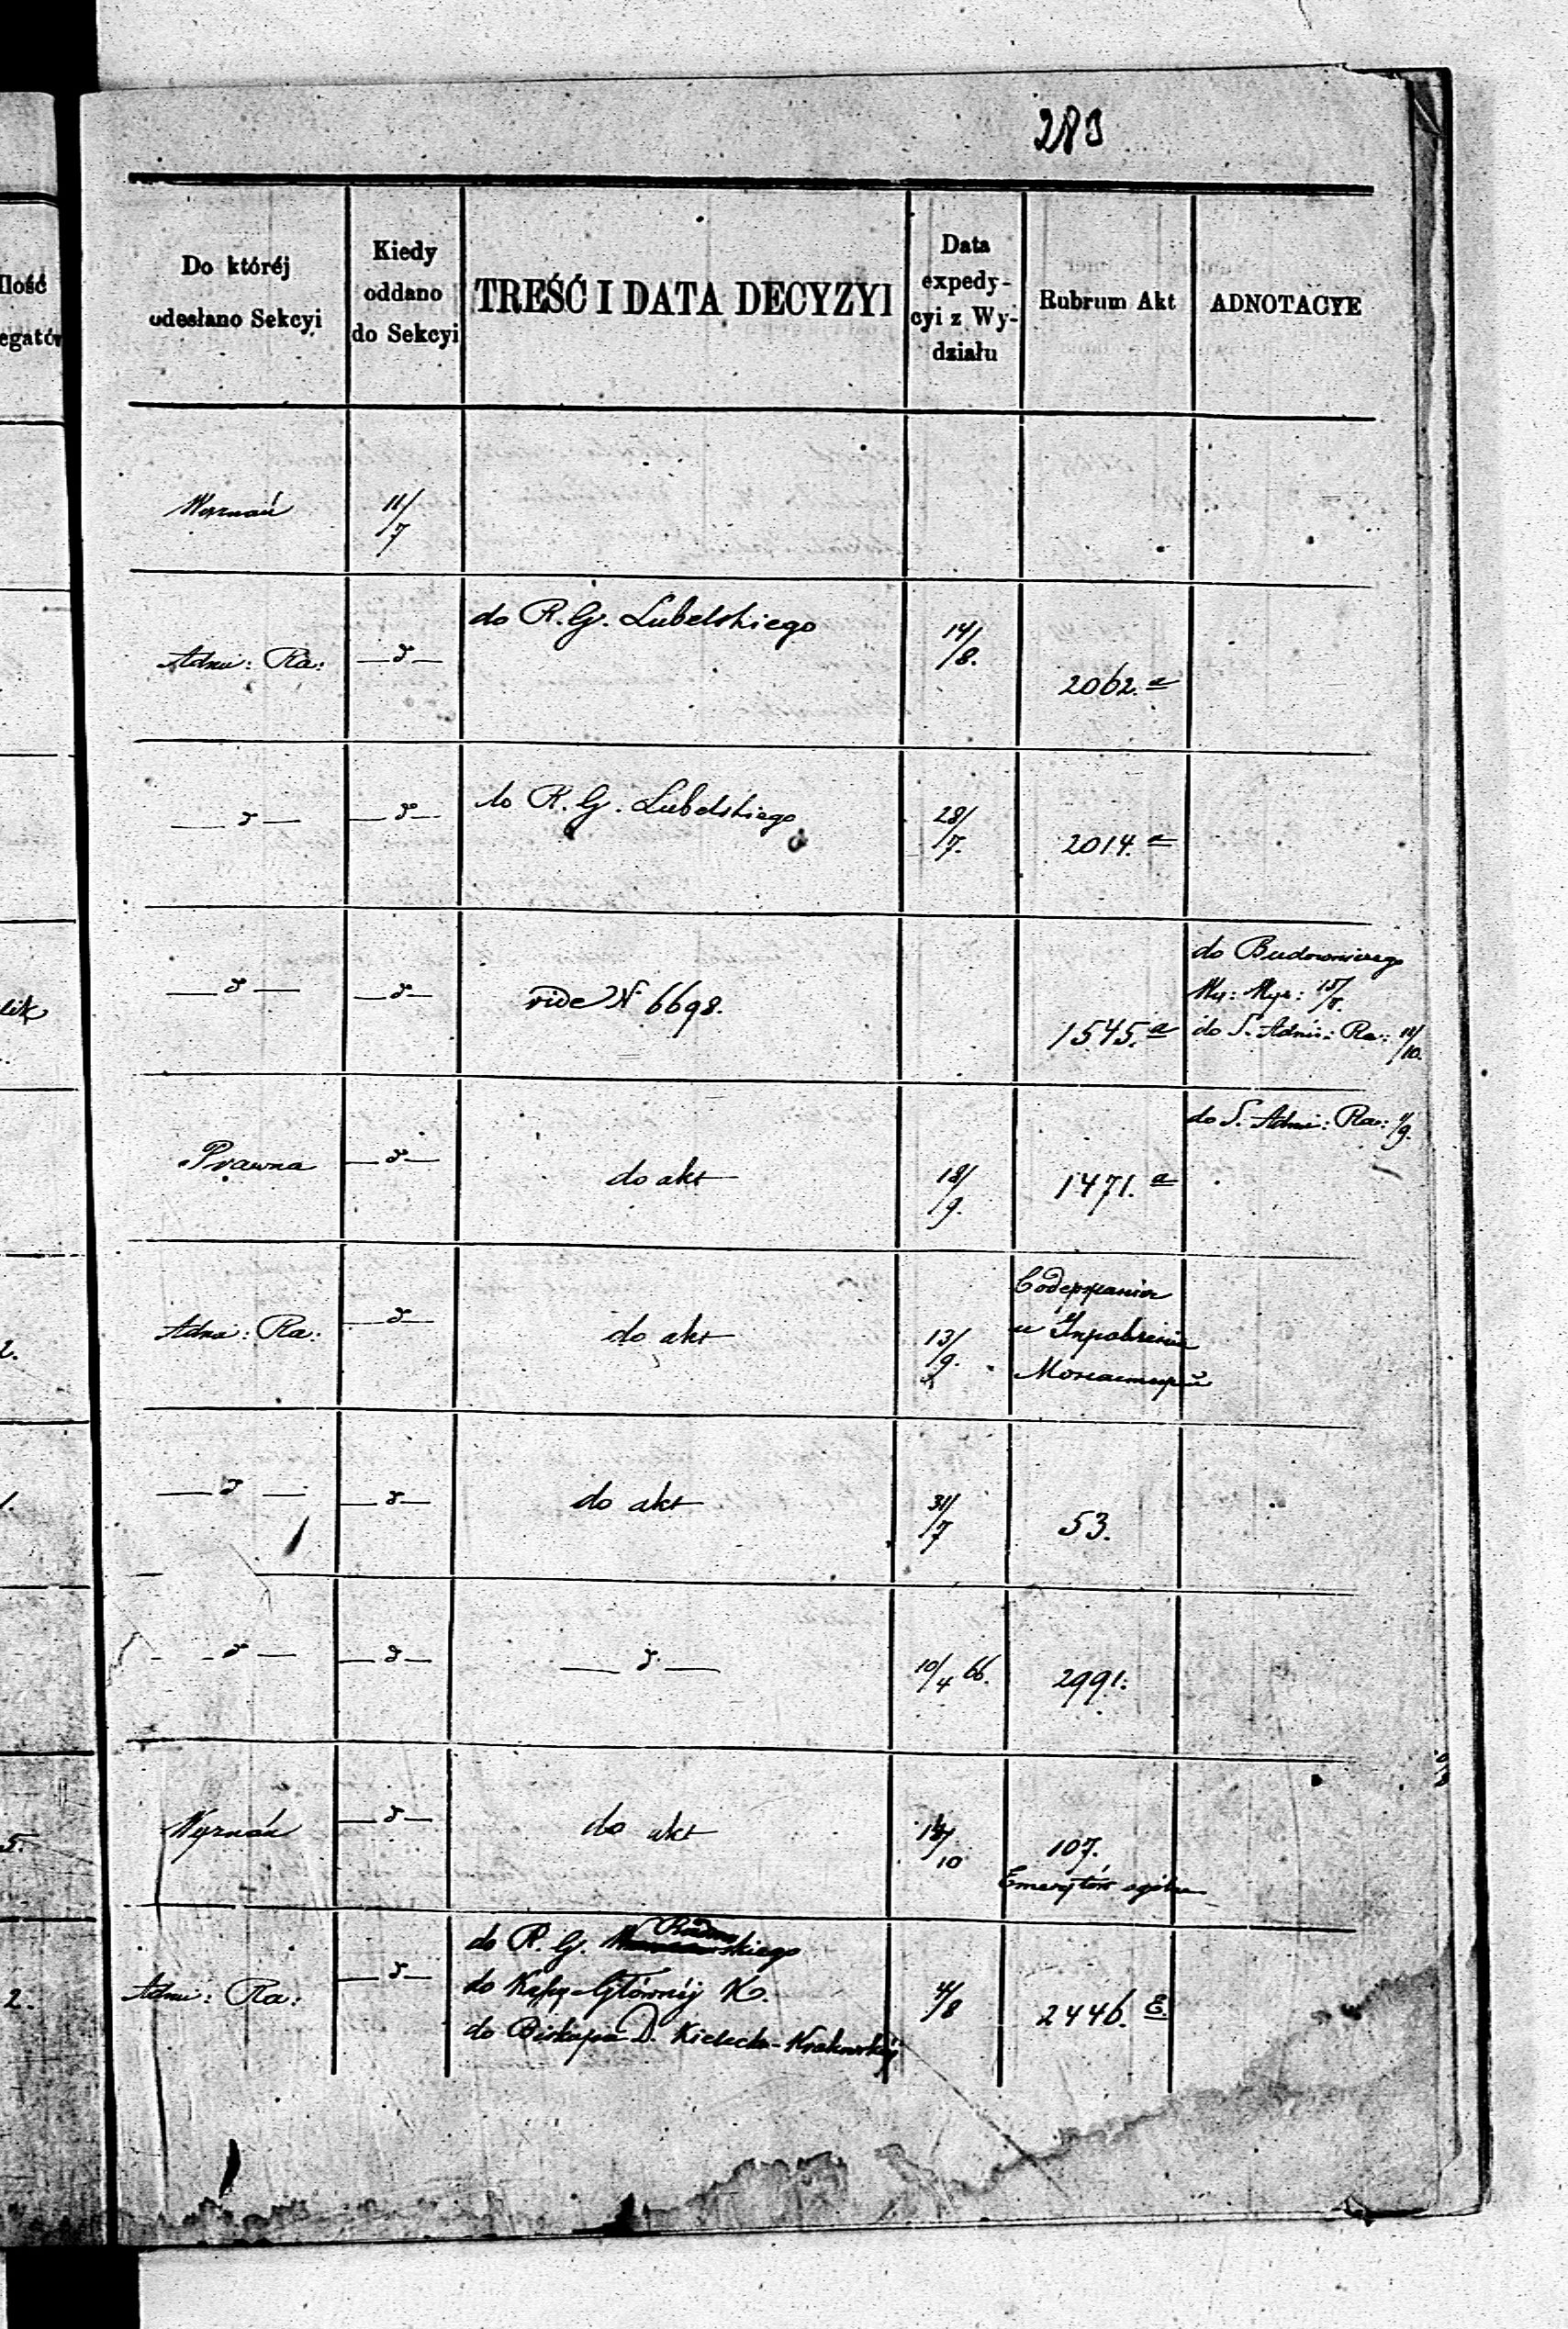 283
Ilość
egatów
Do któréj
odesłano Sekcyi
Kiedy
oddano
do Sekcyi
TREŚĆ I DATA DECYZYI
Data
expedy-
cyi z Wy-
działu
Rubrum Akt
ADNOTACYE
Wyznań
11/7
Adm: Ra:
— d —
do R. G. Lubelskiego
14/8.
2062. a
— d —
— d —
do R. G. Lubelskiego
28/7.
2014. a
— d —
— d —
vide N 6698.
1545. a
do Budowniczego
do S. Admi: Ra: 11/10.
Prawna
— d —
do akt
18/9.
1471. a
do S. Adm: Ra: 1/9.
Adm: Ra:
— d —
do akt
13/9.
Содержания
и
— d —
— d —
do akt
31/7
53.
— d —
— d —
— d —
10/4 66.
2991.
Wyznań
— d —
do akt
10
107.
Emerytów ogólne
Adm: Ra:
— d —
do R. G. Radomskiego
do Kassy Głównéj K.
do Biskupa D. Kielecko-Krakowskiéj
4/8
2446. E.
2.
1.
5.
2.